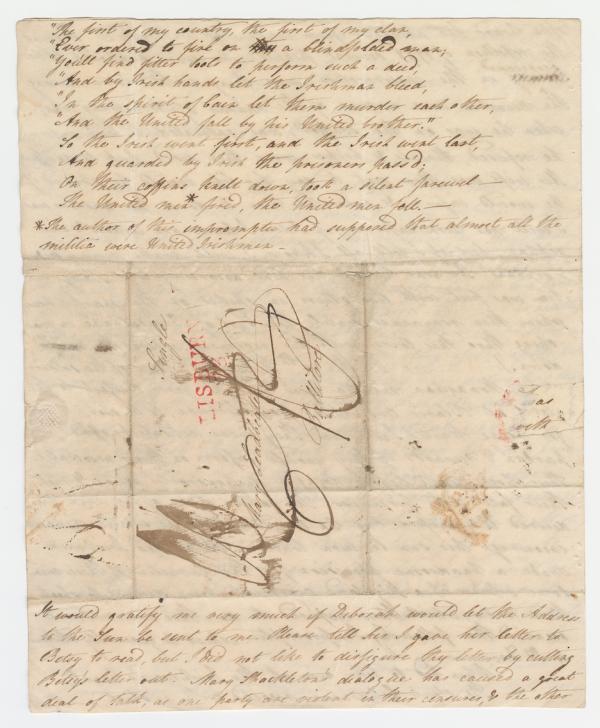 "The first of my country, the first of my clan,
"Ever ordered to fire on a blindfolded man;
"You'll find fitter tools to perform such a deed,
"And by Irish hands let the Irishman bleed,
"In the spirit of Cain let them murder each other,
"And the United fall by his United brother."
So the Irish went first, and the Irish went last,
And guarded by Irish the prisoners pass'd;
On their coffins knelt down, took a silent farewel—
The United men* fired, the United men fell—
*The author of this impromptu had supposed that almost all the
militia were United Irishmen—
Single
LISBURN
Mary
as
with
It would gratify me very much if Deborah would let the Address
to the Sun be sent to me. Please tell her I gave her letter to
Betsy to read, but I did not like to disfigure thy letter by cutting
Betsy's letter out. Mary Shackleton's dialogue has caused a great
deal of talk, as one party are violent in their censures, & the other